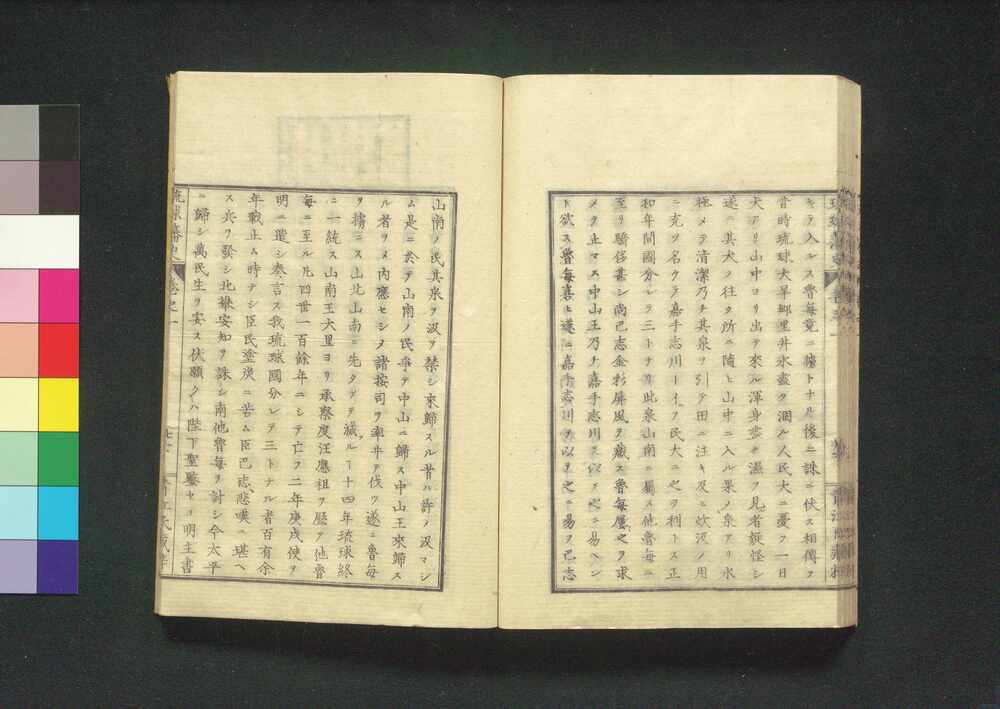 キテ入ルス魯每竟ニ擒トナル後ニ誅ニ伏ス相傳フ
昔時琉球大旱郷里井水盡ク涸ル人民大ニ憂フ一日
犬アリ山中ヨリ出テ來ル渾身盡ク濕フ見者疑怪シ
遂ニ其犬ノ往ク所ニ隨ヒ山中ニ入ル果ノ泉アリ水
極メテ清潔乃チ其泉ヲ引テ田ニ注キ及ヒ炊汲ノ用
ニ充ツ名ケテ嘉手志川ト イフ民大ニ之ヲ利トス正
和年間國分レテ三トナリ此泉山南ニ屬ス他魯每ニ
至リ驕侈甚シ尚巴志金彩屏風ヲ藏ス魯每屢之ヲ求
メテ止マス中山王乃チ嘉手志川ヲ以テ之ニ易ヘン
ト欲ス魯每喜ヒ遂ニ嘉手志川ヲ以テ之ニ易フ巴志
山南ノ民其泉ヲ汲ヲ禁シ來歸スル者ハ許ノ汲マシ
ム是ニ於テ山南ノ民爭テ中山ニ歸ス中山王來歸ス
ル者ヲメ内應セシメ諸按司ヲ率ヰテ伐ツ遂ニ魯每
ヲ擒ニス山北山南ニ先タチテ滅ルヿ十四年琉球終
ニ一統ス山南王大里ヨリ承察度汪應祖ヲ歴テ他魯
每ニ至ル凡四世一百餘年ニシテ亡フ二年庚戌使ヲ
明ニ遣シ奏言ス我琉球國分レテ三トナル者百有余
年戰止ム時ナシ臣民塗炭ニ苦ム臣巴志悲嘆ニ堪ヘ
ス兵ヲ發シ北攀安知ヲ誅シ南他魯每ヲ討シ今太平
ニ歸シ萬民生ヲ安ス伏願クハ陛下聖鑒セヨ明主書
琉球藩史
卷之一